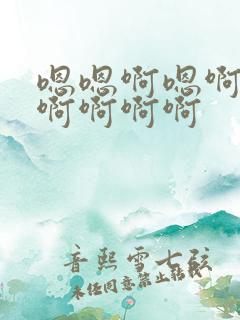 嗯嗯啊嗯啊
啊啊啊啊
音熙雪七弦
未经同意禁止转载